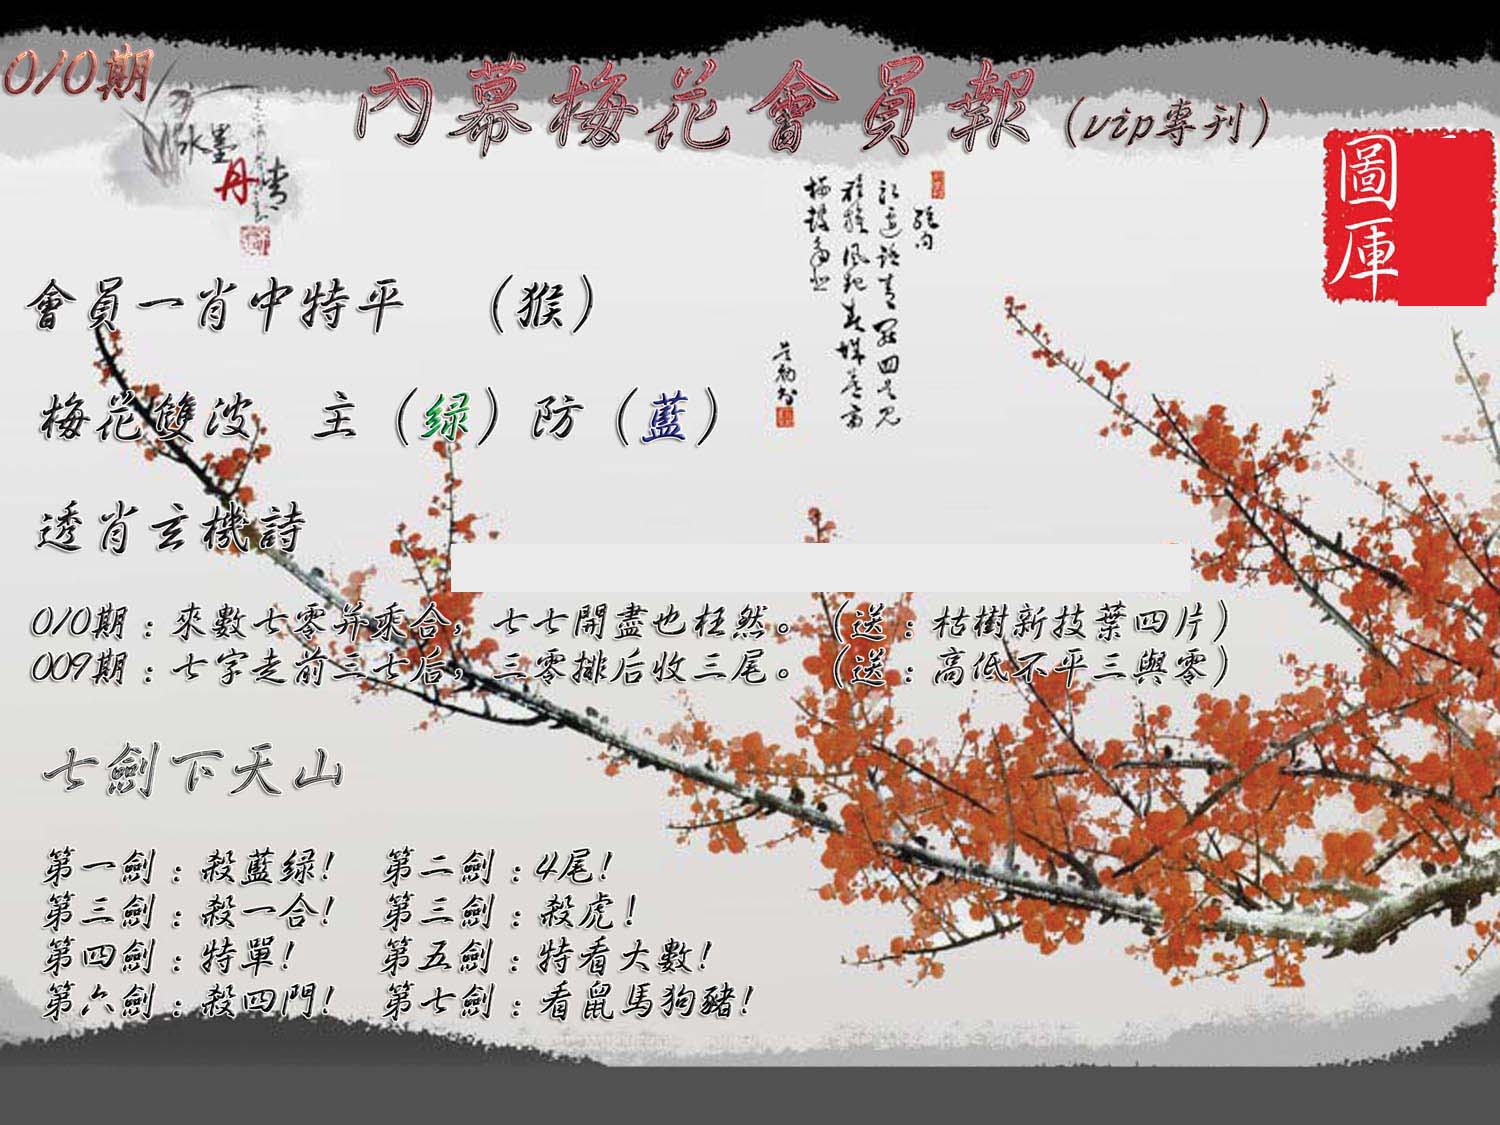 010期
內幕梅花會員報（vip專刊）
水墨
丹青
圖
庫
會員一肖中特平　（猴）
梅花雙波　主（绿）防（藍）
透肖玄機詩
010期：來數七零并乘合，七七開盡也枉然。（送：枯樹新技葉四片）
009期：七字走前三七后，三零排后收三尾。（送：高低不平三與零）
七劍下天山
第一劍：殺藍绿！　第二劍：4尾！
第三劍：殺一合！　第三劍：殺虎！
第四劍：特單！　第五劍：特看大數！
第六劍：殺四門！　第七劍：看鼠馬狗豬！